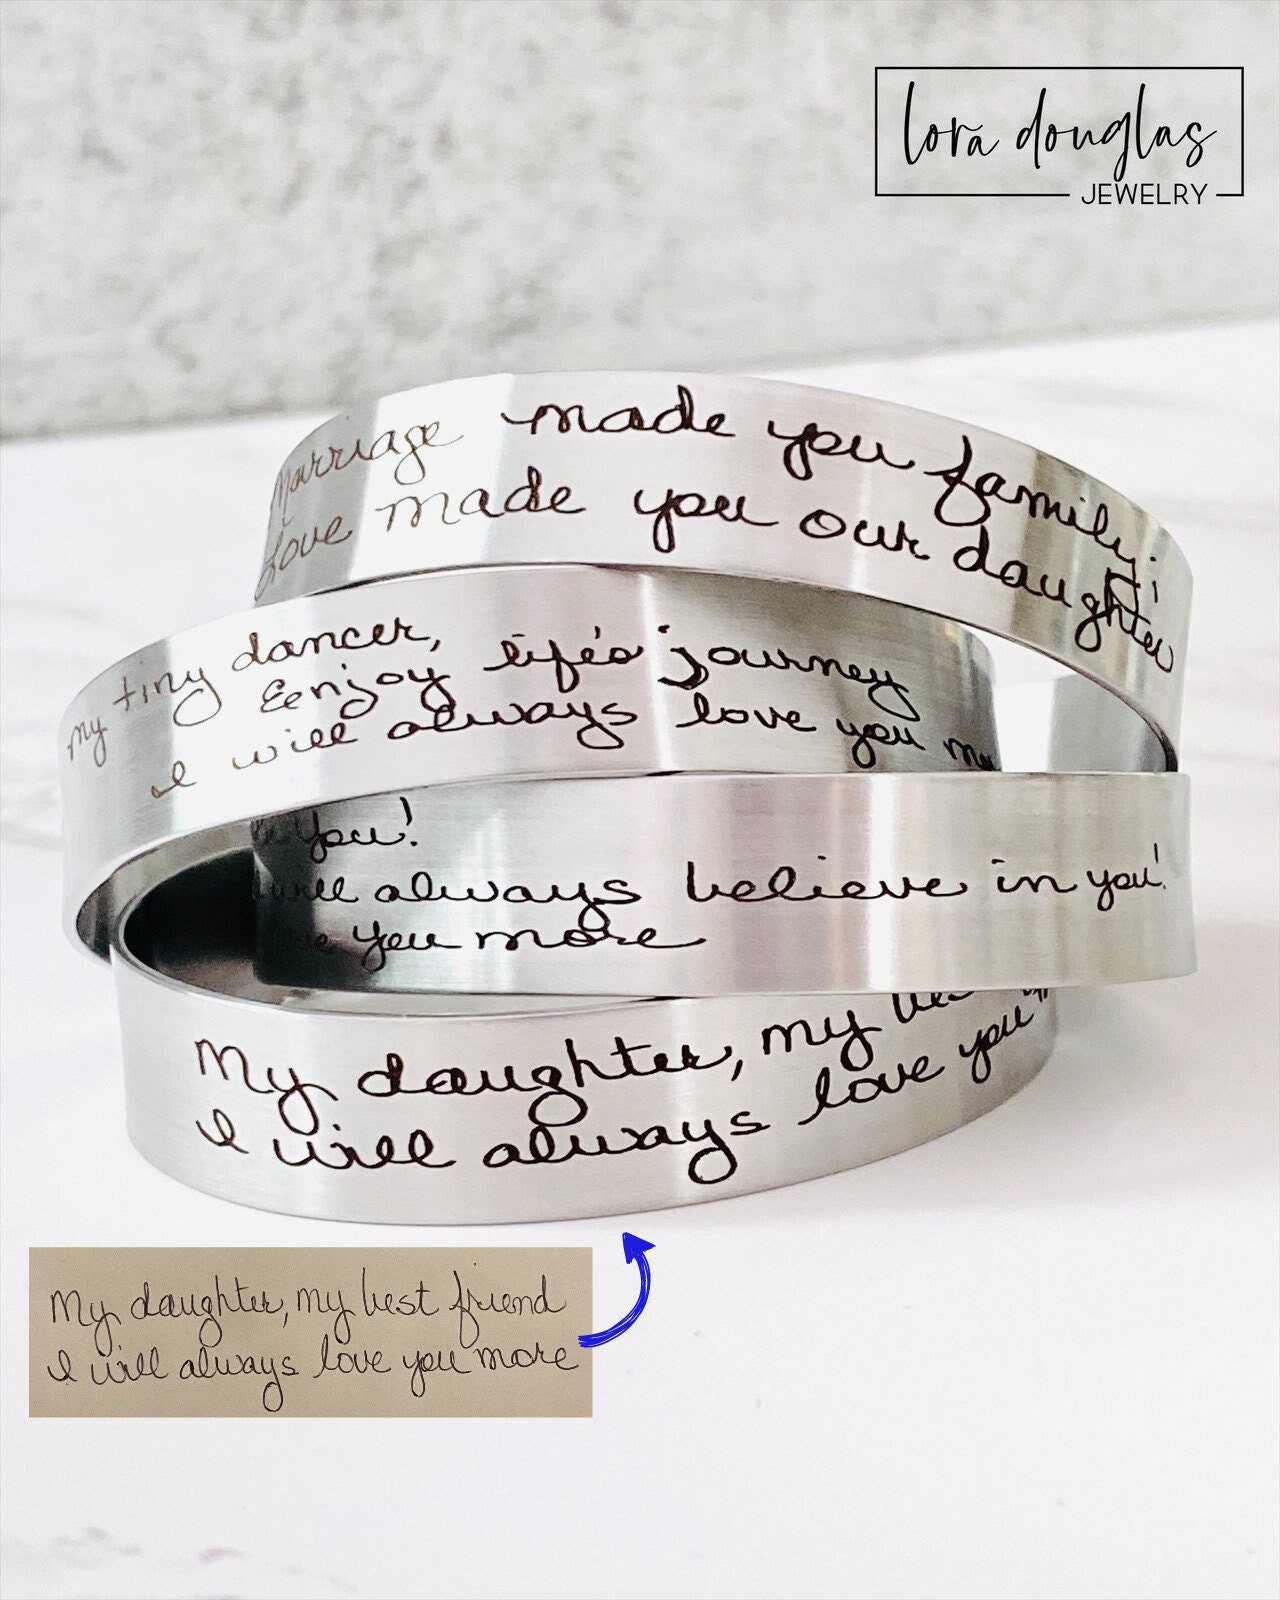 lora douglas
JEWELRY
Marriage made you family;
Love made you our daughter
My tiny dancer,
Eenjoy life's journey
I will always love you
you!
will always believe in you!
you more
My daughter, my
I will always love you
My daughter, my best friend
I will always love you more